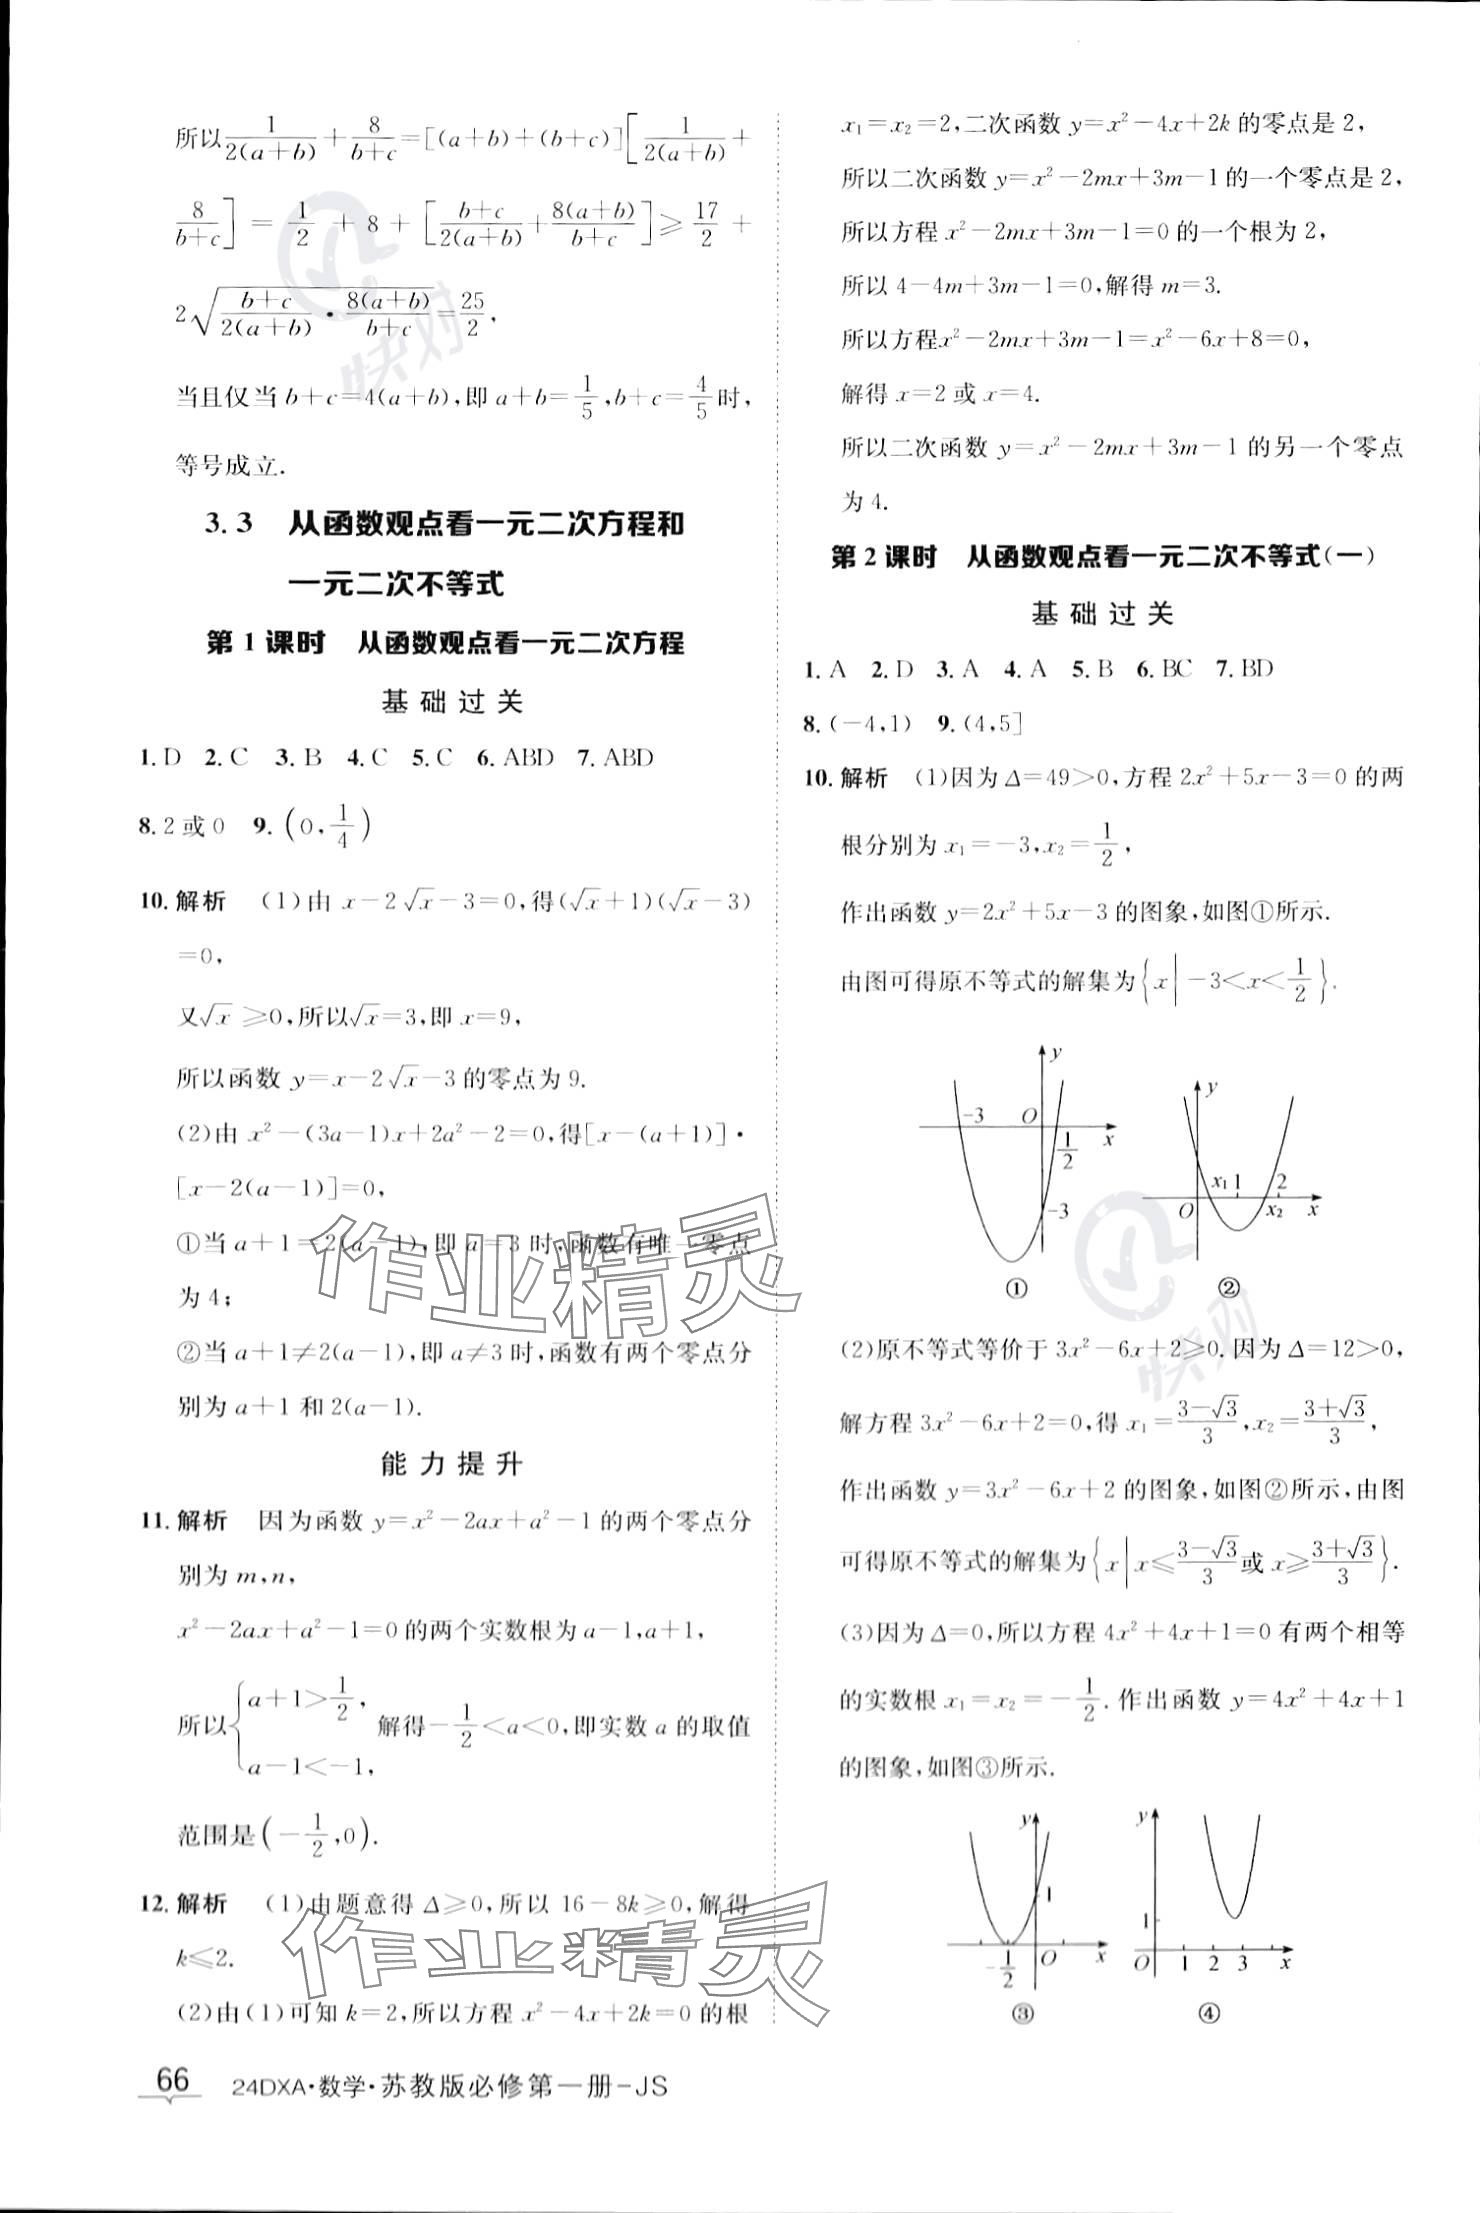 所以1/2(a+b)+8/b+c=[(a+b)+(b+c)][1/2(a+b)+
8/b+c]=1/2+8+[b+c/2(a+b)+8(a+b)/b+c]≥17/2+
2√(b+c/2(a+b)·8(a+b)/b+c)=25/2,
当且仅当b+c=4(a+b),即a+b=1/5,b+c=4/5时,
等号成立.
3.3 从函数观点看一元二次方程和
一元二次不等式
第1课时 从函数观点看一元二次方程
基础过关
1.D 2.C 3.B 4.C 5.C 6.ABD 7.ABD
8.2或0 9.(0,1/4)
10.解析 (1)由x-2√x-3=0,得(√x+1)(√x-3)
=0,
又√x≥0,所以√x=3,即x=9,
所以函数y=x-2√x-3的零点为9.
(2)由x²-(3a-1)x+2a²-2=0,得[x-(a+1)]·
[x-2(a-1)]=0,
①当a+1=2(a-1),即a=3时,函数有唯一零点
为4;
②当a+1≠2(a-1),即a≠3时,函数有两个零点分
别为a+1和2(a-1).
能力提升
11.解析 因为函数y=x²-2ax+a²-1的两个零点分
别为m,n,
x²-2ax+a²-1=0的两个实数根为a-1,a+1,
所以{a+1>1/2, a-1<-1, 解得-1/2<a<0,即实数a的取值
范围是(-1/2,0).
12.解析 (1)由题意得Δ≥0,所以16-8k≥0,解得
k≤2.
(2)由(1)可知k=2,所以方程x²-4x+2k=0的根
66 24DXA·数学·苏教版必修第一册-JS
x₁=x₂=2,二次函数y=x²-4x+2k的零点是2,
所以二次函数y=x²-2mx+3m-1的一个零点是2,
所以方程x²-2mx+3m-1=0的一个根为2,
所以4-4m+3m-1=0,解得m=3.
所以方程x²-2mx+3m-1=x²-6x+8=0,
解得x=2或x=4.
所以二次函数y=x²-2mx+3m-1的另一个零点
为4.
第2课时 从函数观点看一元二次不等式(一)
基础过关
1.A 2.D 3.A 4.A 5.B 6.BC 7.BD
8.(-4,1) 9.(4,5]
10.解析 (1)因为Δ=49>0,方程2x²+5x-3=0的两
根分别为x₁=-3,x₂=1/2,
作出函数y=2x²+5x-3的图象,如图①所示.
由图可得原不等式的解集为{x|-3<x<1/2}.
y
-3 O 1/2 x
-3
①
y
x₁ 1 2
O x₂ x
②
(2)原不等式等价于3x²-6x+2≥0.因为Δ=12>0,
解方程3x²-6x+2=0,得x₁=3-√3/3,x₂=3+√3/3,
作出函数y=3x²-6x+2的图象,如图②所示,由图
可得原不等式的解集为{x|x≤3-√3/3或x≥3+√3/3}.
(3)因为Δ=0,所以方程4x²+4x+1=0有两个相等
的实数根x₁=x₂=-1/2.作出函数y=4x²+4x+1
的图象,如图③所示.
y
1
-1/2 O x
③
y
1
O 1 2 3 x
④
作业精灵
作业精灵
快对
快对